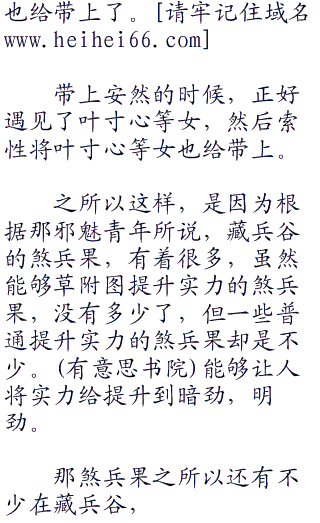 也给带上了。[请牢记住域名
www.heihei66.com]
带上安然的时候，正好
遇见了叶寸心等女，然后索
性将叶寸心等女也给带上。
之所以这样，是因为根
据那邪魅青年所说，藏兵谷
的煞兵果，有着很多，虽然
能够草附图提升实力的煞兵
果，没有多少了，但一些普
通提升实力的煞兵果却是不
少。(有意思书院)能够让人
将实力给提升到暗劲，明
劲。
那煞兵果之所以还有不
少在藏兵谷，